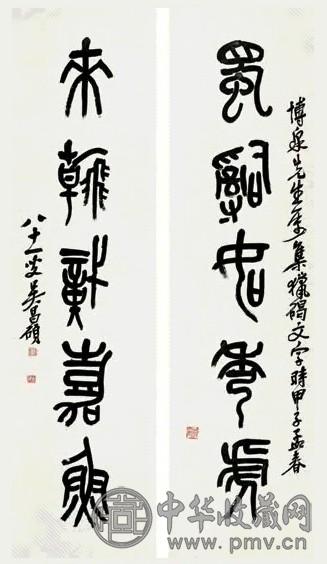 博泉先生屬集獵碣文字時甲子孟春
秀虎
來翰嘉魚
八十一叟吳昌碩
中华收藏网
www.pmv.cn